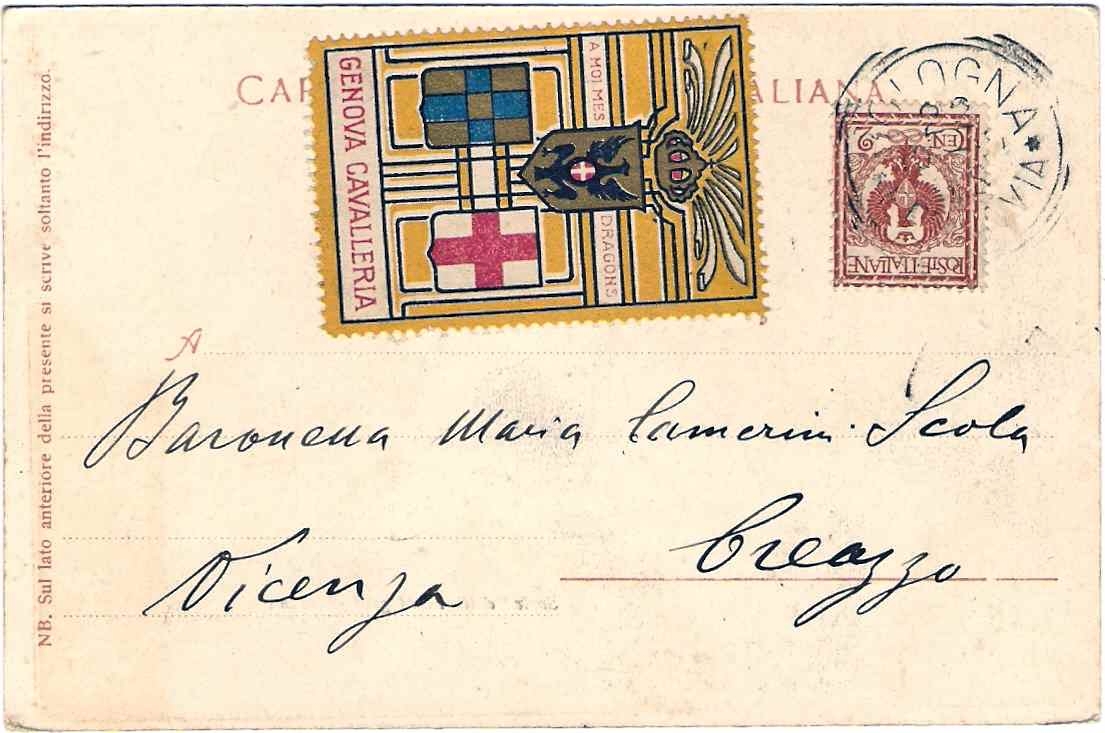 CAR ALIANA
GENOVA CAVALLERIA
A MOI MES DRAGONS
LOGNA * VIA
CEN 2
POSTE·ITALIANE
NB. Sul lato anteriore della presente si scrive soltanto l'indirizzo.
A
Baronessa Maria Camerini Scola
Creazzo
Vicenza